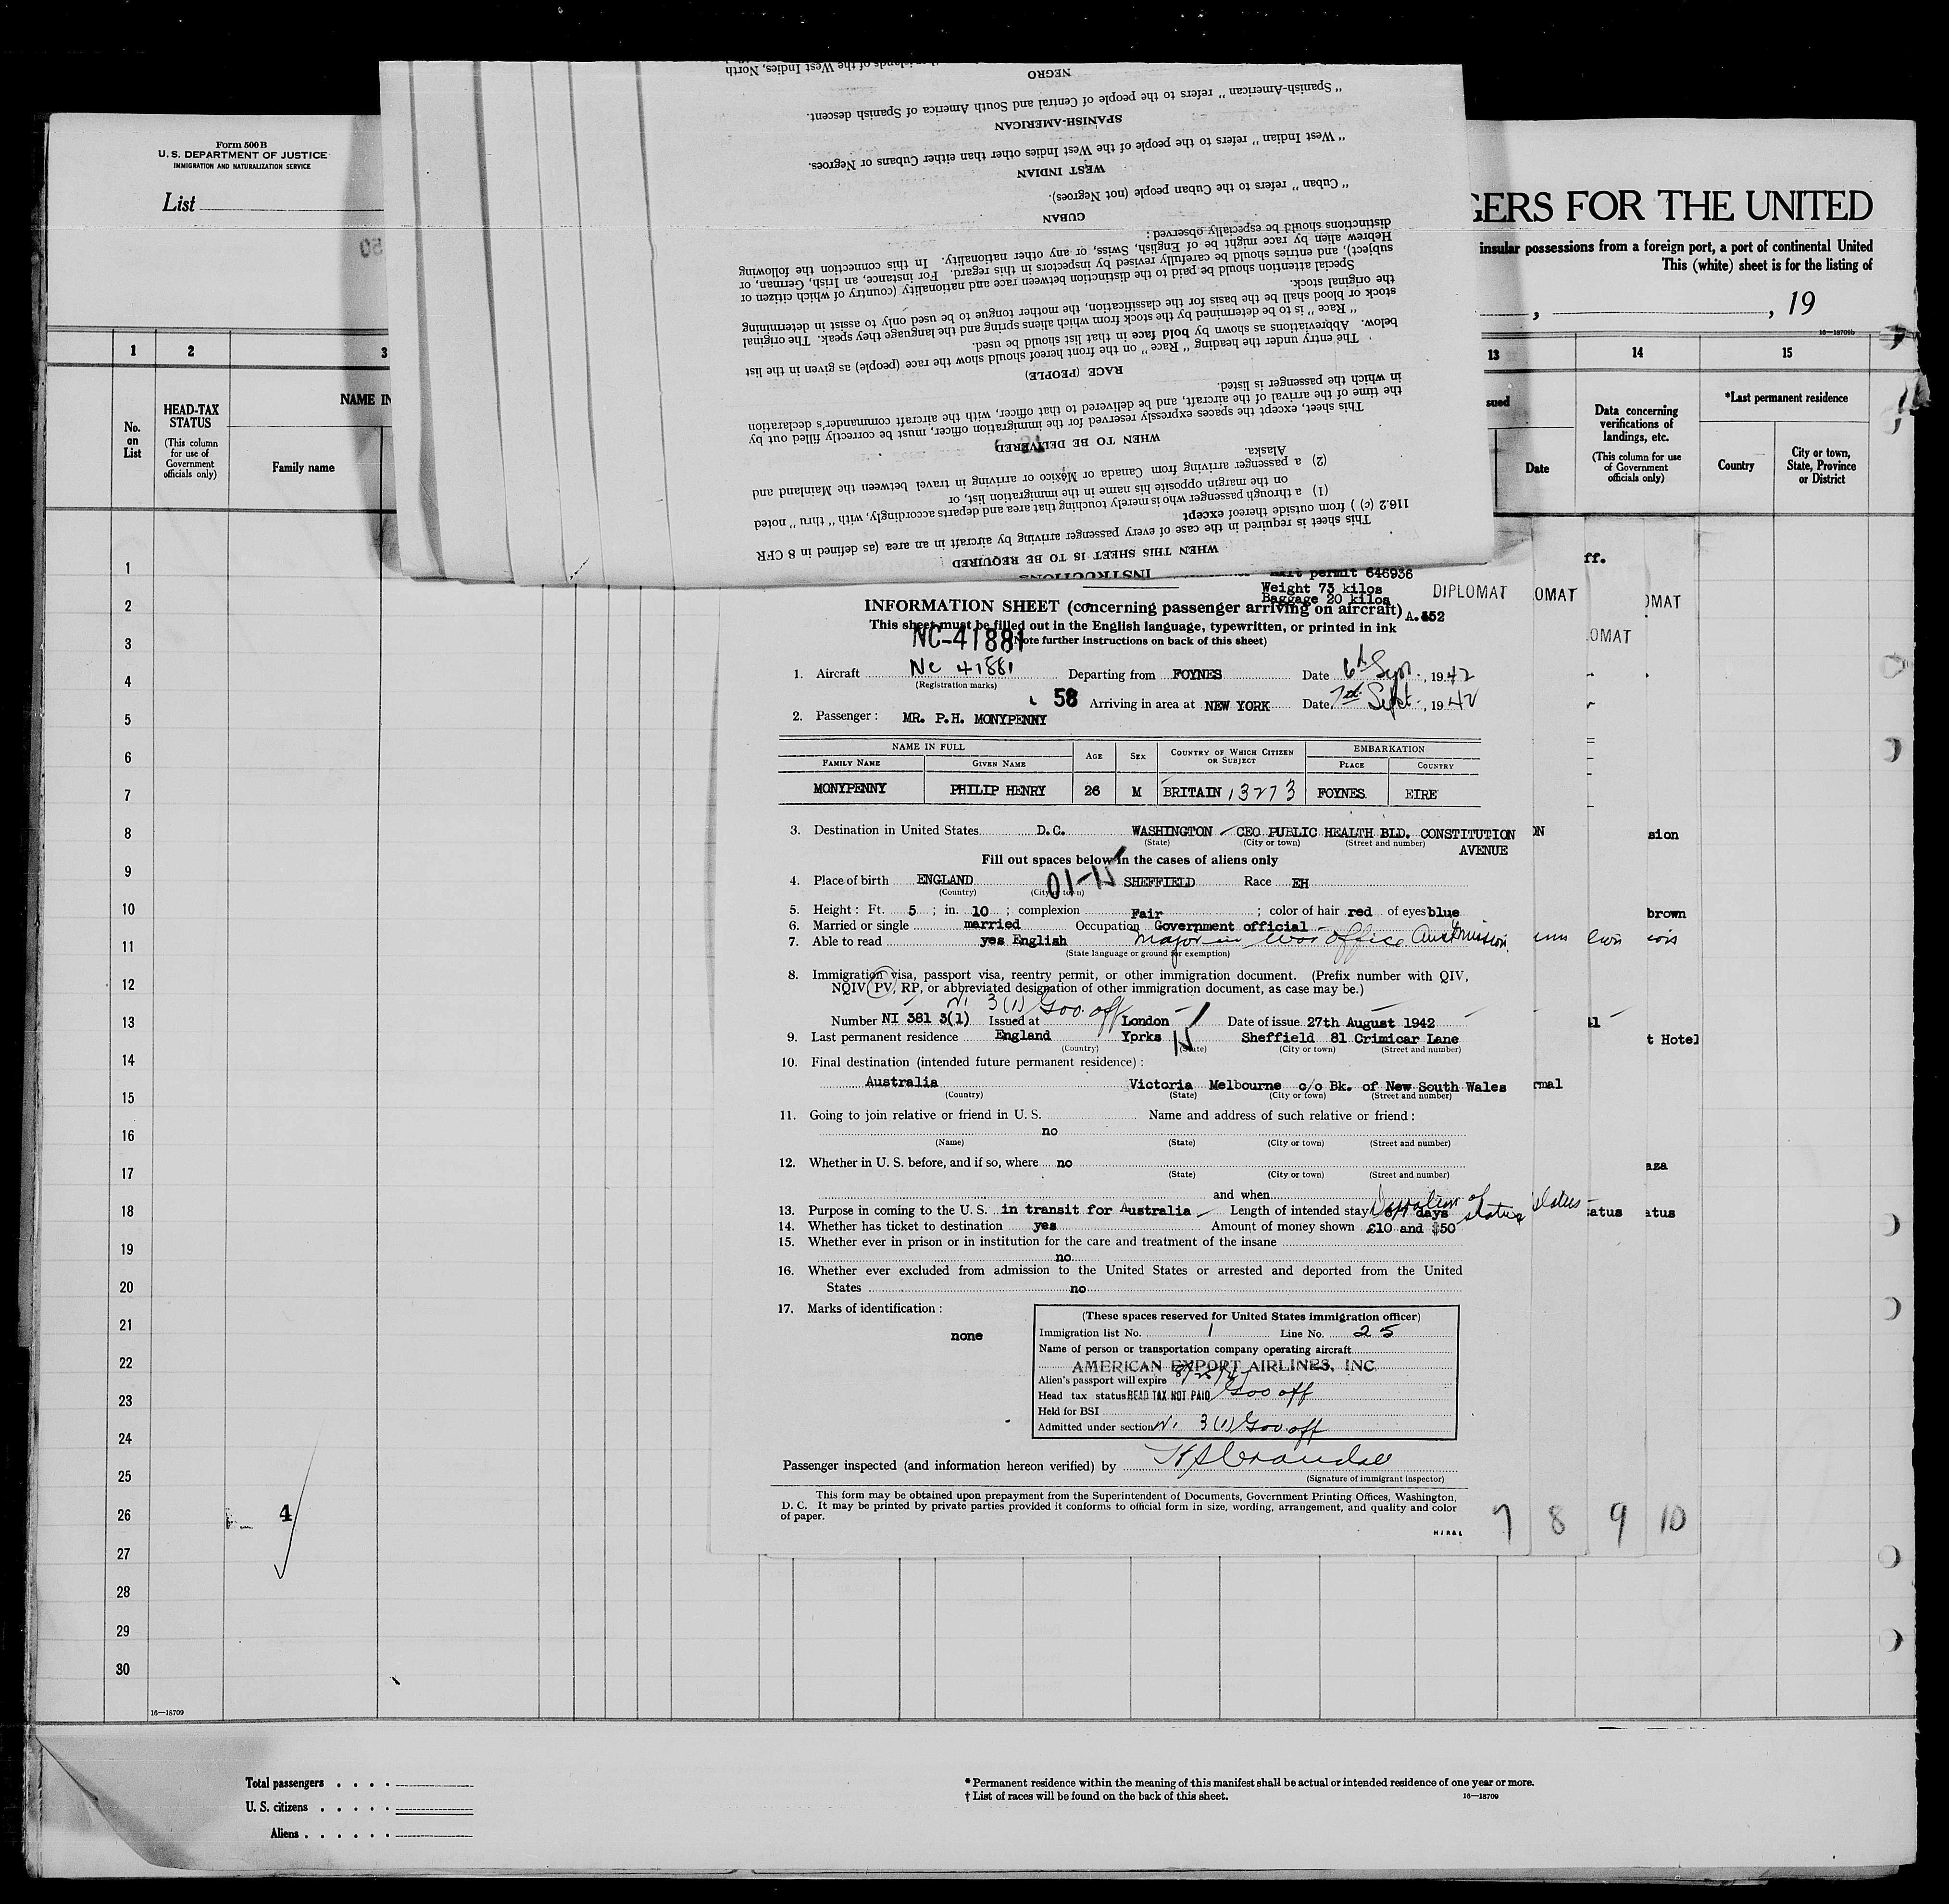 Form 500 B
U. S. DEPARTMENT OF JUSTICE
IMMIGRATION AND NATURALIZATION SERVICE
List
GERS FOR THE UNITED
insular possessions from a foreign port, a port of continental United
This (white) sheet is for the listing of
, , 19
16—18709b
1 2 3 13 14 15
No. on List
HEAD-TAX STATUS
(This column for use of Government officials only)
NAME IN
Family name
sued
Date
Data concerning verifications of landings, etc.
(This column for use of Government officials only)
*Last permanent residence
Country
City or town, State, Province or District
NEGRO
" Spanish-American " refers to the people of Central and South America of Spanish descent.
SPANISH-AMERICAN
" West Indian " refers to the people of the West Indies other than either Cubans or Negroes.
WEST INDIAN
" Cuban " refers to the Cuban people (not Negroes).
CUBAN
distinctions should be especially observed :
Hebrew alien by race might be of English, Swiss, or any other nationality. In this connection the following
subject), and entries should be carefully revised by inspectors in this regard. For instance, an Irish, German, or
Special attention should be paid to the distinction between race and nationality (country of which citizen or
the original stock.
stock or blood shall be the basis for the classification, the mother tongue to be used only to assist in determining
" Race " is to be determined by the stock from which aliens spring and the language they speak. The original
below. Abbreviations as shown by bold face in that list should be used.
The entry under the heading " Race " on the front hereof should show the race (people) as given in the list
RACE (PEOPLE)
in which the passenger is listed.
the time of the arrival of the aircraft, and be delivered to that officer, with the aircraft commander's declaration
This sheet, except the spaces expressly reserved for the immigration officer, must be correctly filled out by
WHEN TO BE DELIVERED
Alaska.
(2) a passenger arriving from Canada or Mexico or arriving in travel between the Mainland and
on the margin opposite his name in the immigration list, or
(1) a through passenger who is merely touching that area and departs accordingly, with " thru " noted
116.2 (c) ) from outside thereof except
This sheet is required in the case of every passenger arriving by aircraft in an area (as defined in 8 CFR
WHEN THIS SHEET IS TO BE REQUIRED
INSTRUCTIONS
Exit permit 646936
Weight 73 kilos
Baggage 20 kilos
DIPLOMAT OMAT OMAT
OMAT
ff.
INFORMATION SHEET (concerning passenger arriving on aircraft)
This sheet must be filled out in the English language, typewritten, or printed in ink
NC-41881
(Note further instructions on back of this sheet)
1. Aircraft NC 41881 Departing from FOYNES Date 6th Sept., 1942
(Registration marks)
58 Arriving in area at NEW YORK Date 7th Sept., 1942
2. Passenger : MR. P.H. MONYPENNY
NAME IN FULL AGE SEX COUNTRY OF WHICH CITIZEN OR SUBJECT EMBARKATION
FAMILY NAME GIVEN NAME PLACE COUNTRY
MONYPENNY PHILIP HENRY 26 M BRITAIN 13273 FOYNES EIRE
3. Destination in United States D.C. WASHINGTON CEO PUBLIC HEALTH BLD. CONSTITUTION
(State) (City or town) (Street and number) AVENUE
Fill out spaces below in the cases of aliens only
4. Place of birth ENGLAND 01-15 SHEFFIELD Race EH
(Country) (City or town)
5. Height : Ft. 5 ; in. 10 ; complexion Fair ; color of hair red of eyes blue
6. Married or single married Occupation Government official
7. Able to read yes English Major in War Office
(State language or ground for exemption)
8. Immigration visa, passport visa, reentry permit, or other immigration document. (Prefix number with QIV,
NQIV, PV, RP, or abbreviated designation of other immigration document, as case may be.)
3(1) Gov. off
Number NI 381 3(1) Issued at London Date of issue 27th August 1942
9. Last permanent residence England Yorks 15 Sheffield 81 Crimicar Lane
(Country) (State) (City or town) (Street and number)
10. Final destination (intended future permanent residence) :
Australia Victoria Melbourne c/o Bk. of New South Wales
(Country) (State) (City or town) (Street and number)
11. Going to join relative or friend in U. S. Name and address of such relative or friend :
no
(Name) (State) (City or town) (Street and number)
12. Whether in U. S. before, and if so, where no
(State) (City or town) (Street and number)
and when
13. Purpose in coming to the U. S. in transit for Australia Length of intended stay days Duration of status
14. Whether has ticket to destination yes Amount of money shown £10 and $50
15. Whether ever in prison or in institution for the care and treatment of the insane
no
16. Whether ever excluded from admission to the United States or arrested and deported from the United
States no
17. Marks of identification :
none
(These spaces reserved for United States immigration officer)
Immigration list No. 1 Line No. 25
Name of person or transportation company operating aircraft
AMERICAN EXPORT AIRLINES, INC
Alien's passport will expire
Head tax status HEAD TAX NOT PAID Gov off
Held for BSI
Admitted under section 3 (1) Gov. off
Passenger inspected (and information hereon verified) by
(Signature of immigrant inspector)
This form may be obtained upon prepayment from the Superintendent of Documents, Government Printing Offices, Washington,
D. C. It may be printed by private parties provided it conforms to official form in size, wording, arrangement, and quality and color
of paper.
H J R & L
7 8 9 10
ON
sion
brown
t Hotel
rmal
aza
atus atus
1
2
3
4
5
6
7
8
9
10
11
12
13
14
15
16
17
18
19
20
21
22
23
24
25
26 4
27
28
29
30
16—18709
Total passengers . . . .
U. S. citizens . . . . .
Aliens . . . . . .
* Permanent residence within the meaning of this manifest shall be actual or intended residence of one year or more.
† List of races will be found on the back of this sheet.
16—18709